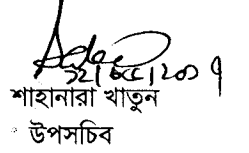 শাহানারা খাতুন
উপসচিব